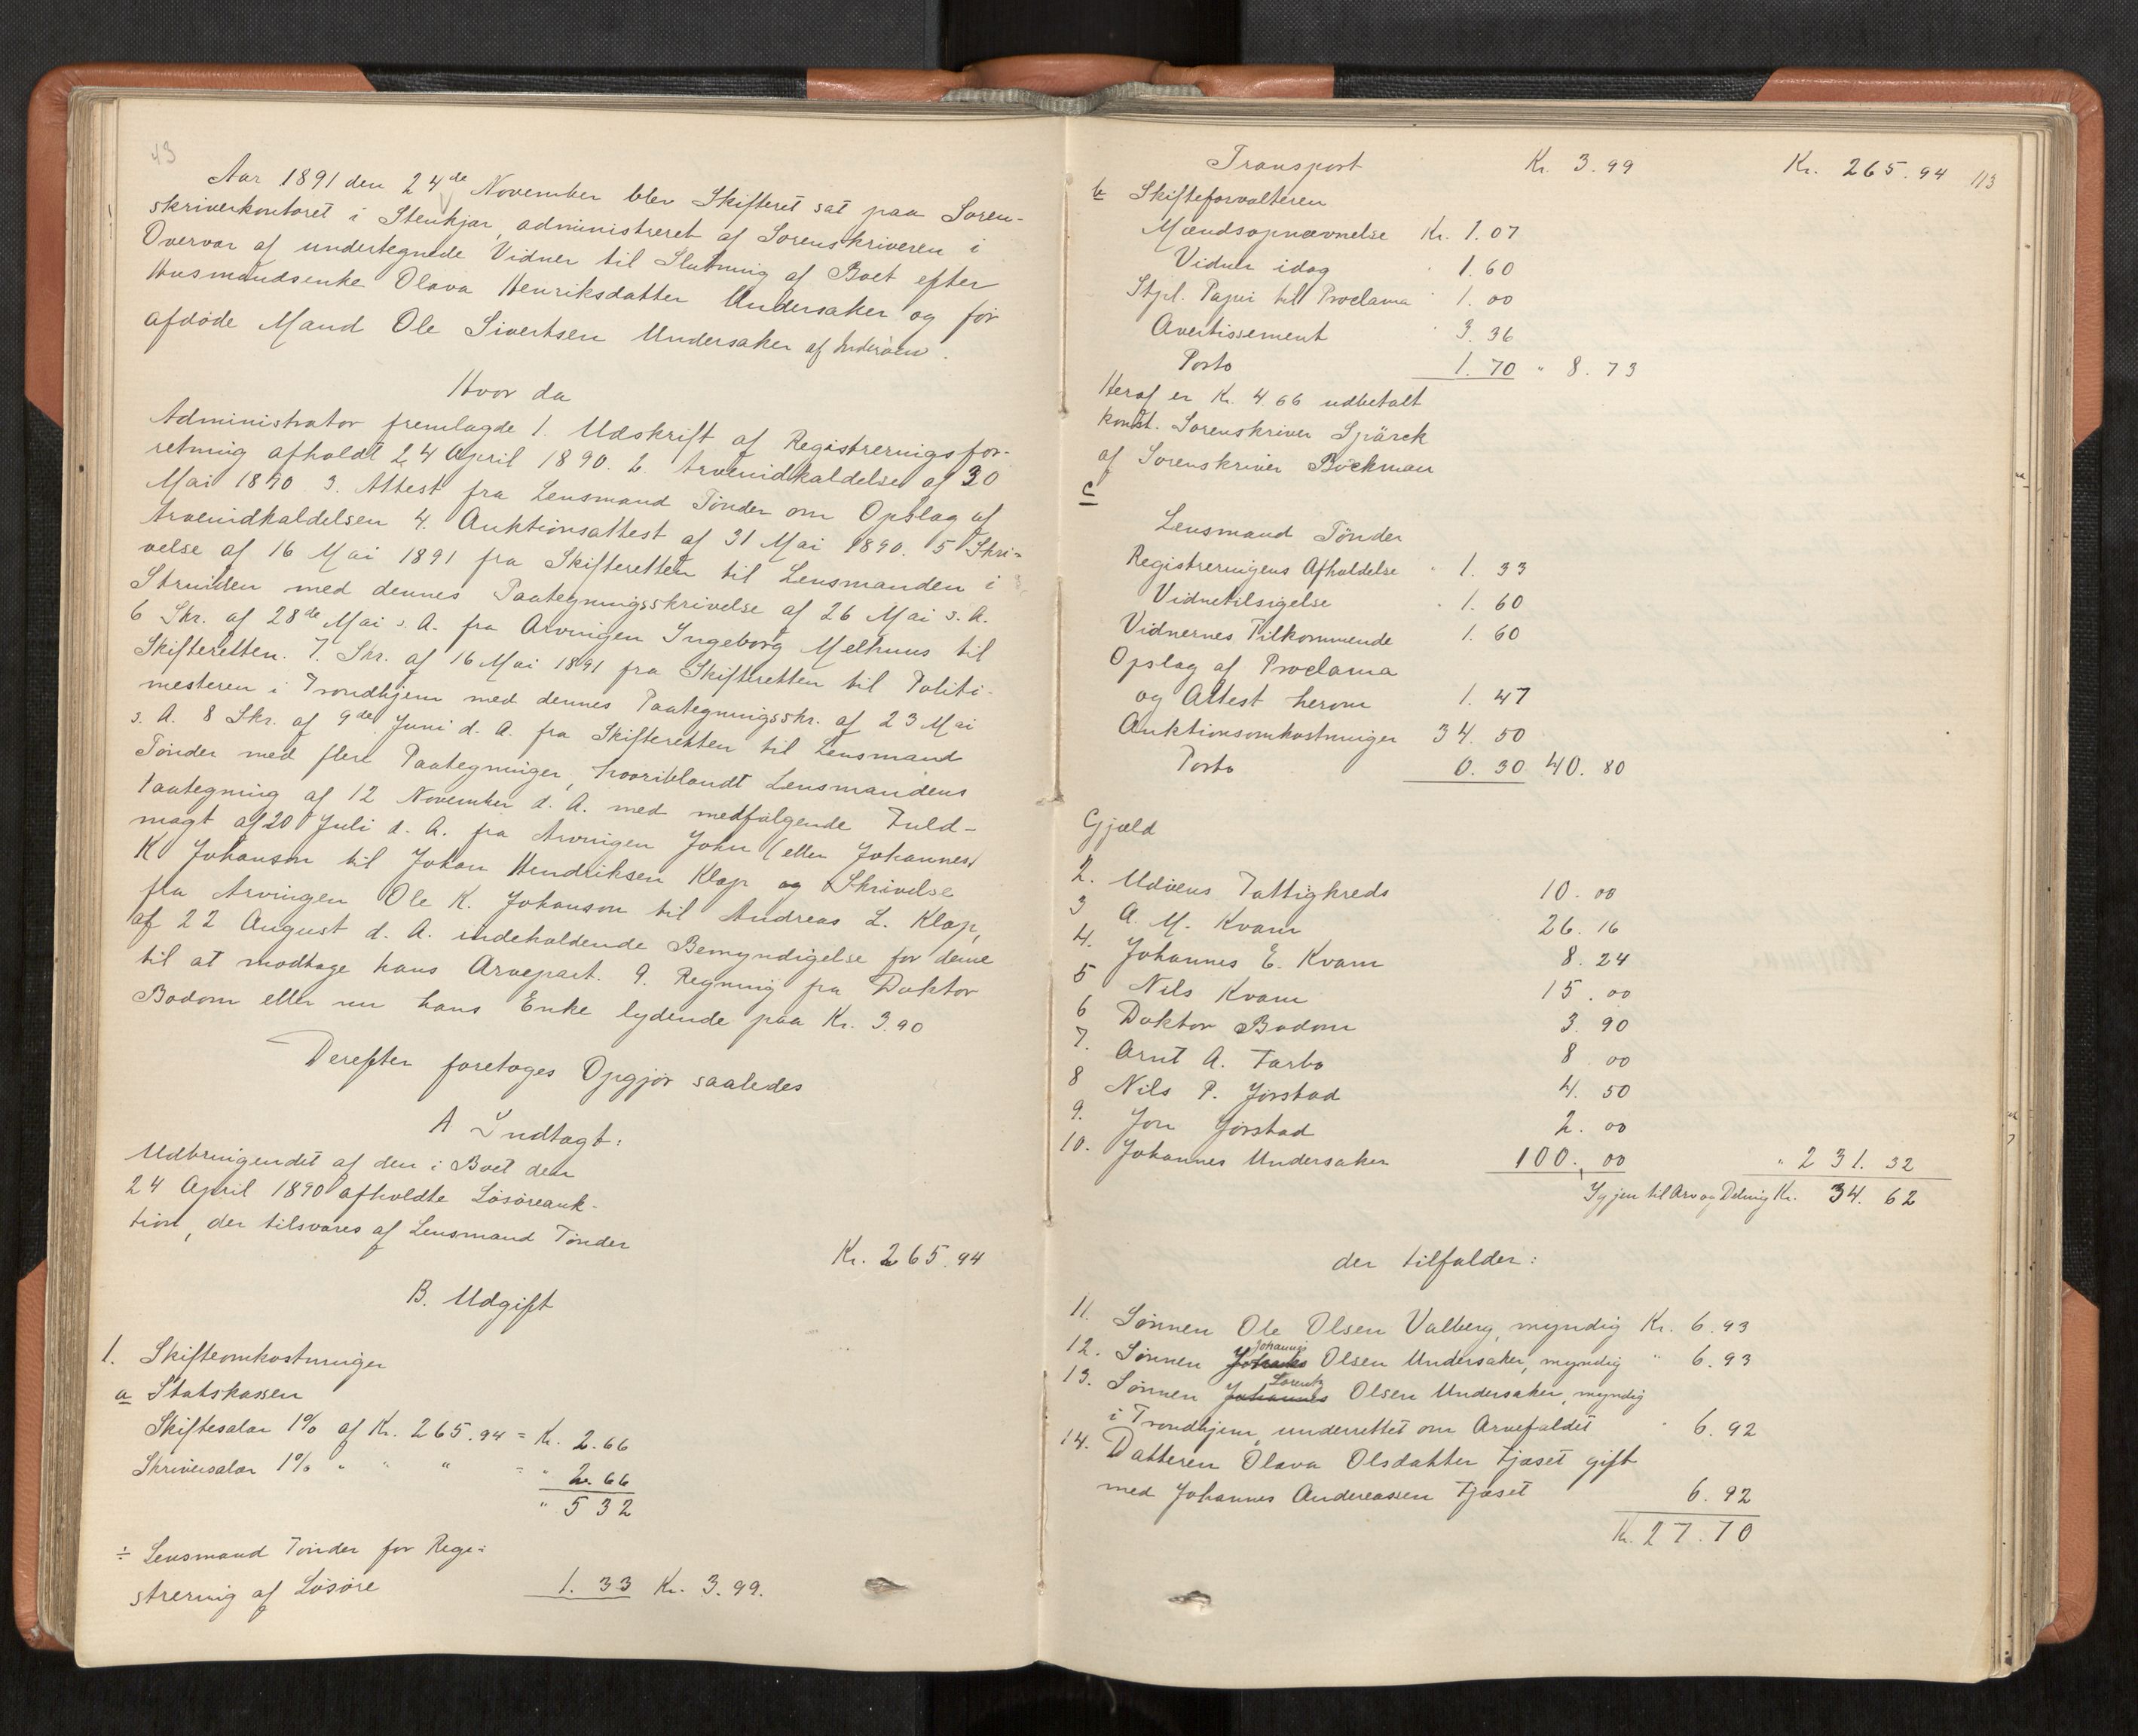 43
Aar 1891 den 24de November blev Skifteret sat paa Soren-
skriverkontoret i Stenkjær, administreret af Sorenskriveren i
Overvær af undertegnede Vidner til Slutning af Boet efter
Husmandsenke Olava Henriksdatter Undersaker og før
afdøde Mand Ole Sivertsen Undersaker af Inderøen.
Hvor da
Administrator fremlagde 1. Udskrift af Registreringsfor-
retning afholdt 24 April 1890. 2. Arveindkaldelse af 30
Mai 1890 3. Attest fra Lensmand Tønder om Opslag af
Arveindkaldelsen 4. Auktionsattest af 31 Mai 1890. 5 Skri-
velse af 16 Mai 1891 fra Skifteretten til Lensmanden i
Strinden med dennes Paategningsskrivelse af 26 Mai s. A.
6 Skr. af 28de Mai s. A. fra Arvingen Ingeborg Melhuus til
Skifteretten. 7. Skr. af 16 Mai 1891 fra Skifteretten til Politi-
mesteren i Trondhjem med dennes Paategningsskr. af 23 Mai
s. A. 8 Skr. af 9de Juni d. A. fra Skifteretten til Lensmand
Tønder med flere Paategninger, hvoriblandt Lensmandens
Paategning af 12 November d. A. med medfølgende Fuld-
magt af 20 Juli d. A. fra Arvingen John (eller Johannes)
K Johanson til Johan Hendriksen Klap og Skrivelse
fra Arvingen Ole K. Johanson til Andreas L. Klap,
af 22 August d. A. indeholdende Bemyndigelse for denne
til at modtage hans Arvepart. 9. Regning fra Doktor
Bodom eller nu hans Enke lydende paa Kr. 3.90
Derefter foretoges Opgjør saaledes
A Indtægt:
Udbringendet af den i Boet den
24 April 1890 afholdte Løsøreauk-
tion, der tilsvares af Lensmand Tønder Kr. 265.94
B. Udgift
1. Skifteomkostninger
a Statskassen
Skiftesalær 1% af Kr. 265.94 = Kr. 2.66
Skriversalær 1% " " " = " 2.66
" 5 32
÷ Lensmand Tønder for Regi-
strering af Løsøre 1. 33 Kr. 3.99.
Transport Kr. 3.99 Kr. 265.94 113
b Skifteforvalteren
Mændsopnævnelse Kr. 1.07
Vidner idag " 1.60
Stpl. Papir til Proclama " 1.00
Avertissement " 3.36
Porto 1.70 " 8.73
Heraf er Kr. 4.66 udbetalt
konst. Sorenskriver Spärck
af Sorenskriver Bøckman
c
Lensmand Tønder
Registreringens Afholdelse " 1.33
Vidnetilsigelse " 1.60
Vidnernes Tilkommende 1.60
Opslag af Proclama
og Attest herom 1.47
Auktionsomkostninger 34.50
Porto 0.30 40.80
Gjæld
2. Udøens Fattigkreds 10.00
3 A. M. Kvam 26.16
4. Johannes E. Kvam 8.24
5 Nils Kvam 15.00
6 Doktor Bodom 3.90
7. Arnt A. Tarbo 8 00
8 Nils P. Jørstad 4.50
9. Jon Jørstad 2.00
10. Johannes Undersaker 100.00 " 231.32
Igjen til Arv og Deling Kr. 34.62
der tilfalder:
11. Sønnen Ole Olsen Valberg, myndig Kr. 6.93
Johannes
12. Sønnen Olsen Undersaker, myndig " 6.93
Lorentz
13. Sønnen Johannes Olsen Undersaker, myndig
i Trondhjem, underrettet om Arvefaldet " 6.92
14. Datteren Olava Olsdatter Tjaset gift
med Johannes Andereassen Tjaset 6.92
Kr. 27.70